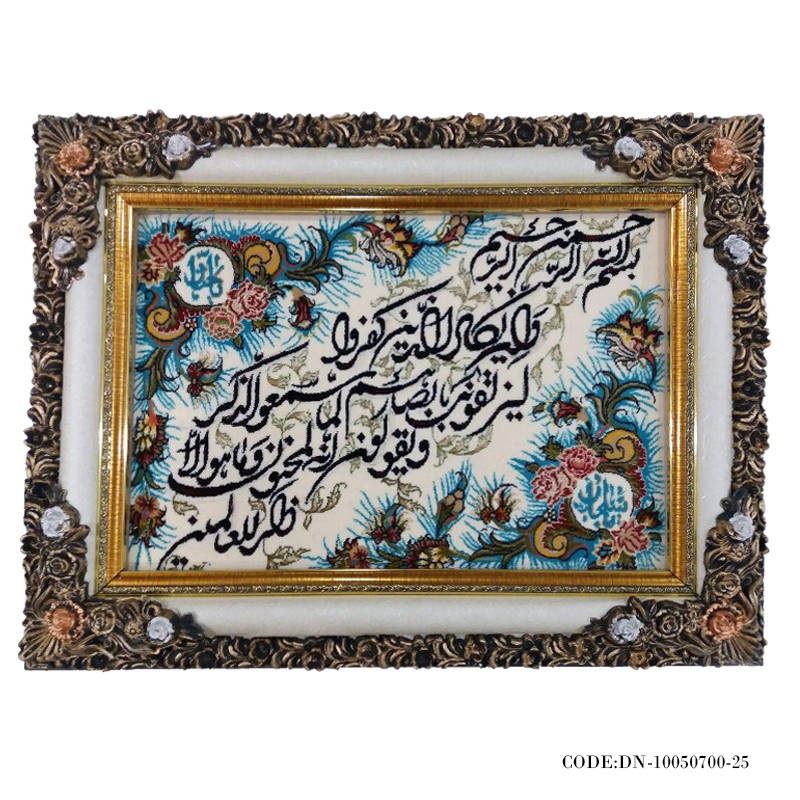 بسم الله الرحمن الرحیم
وان یکاد الذین کفروا
لیزلقونک بابصارهم لما سمعوا الذکر
ویقولون انه لمجنون وما هو الا
ذکر للعالمین
ماشاءالله
CODE:DN-10050700-25